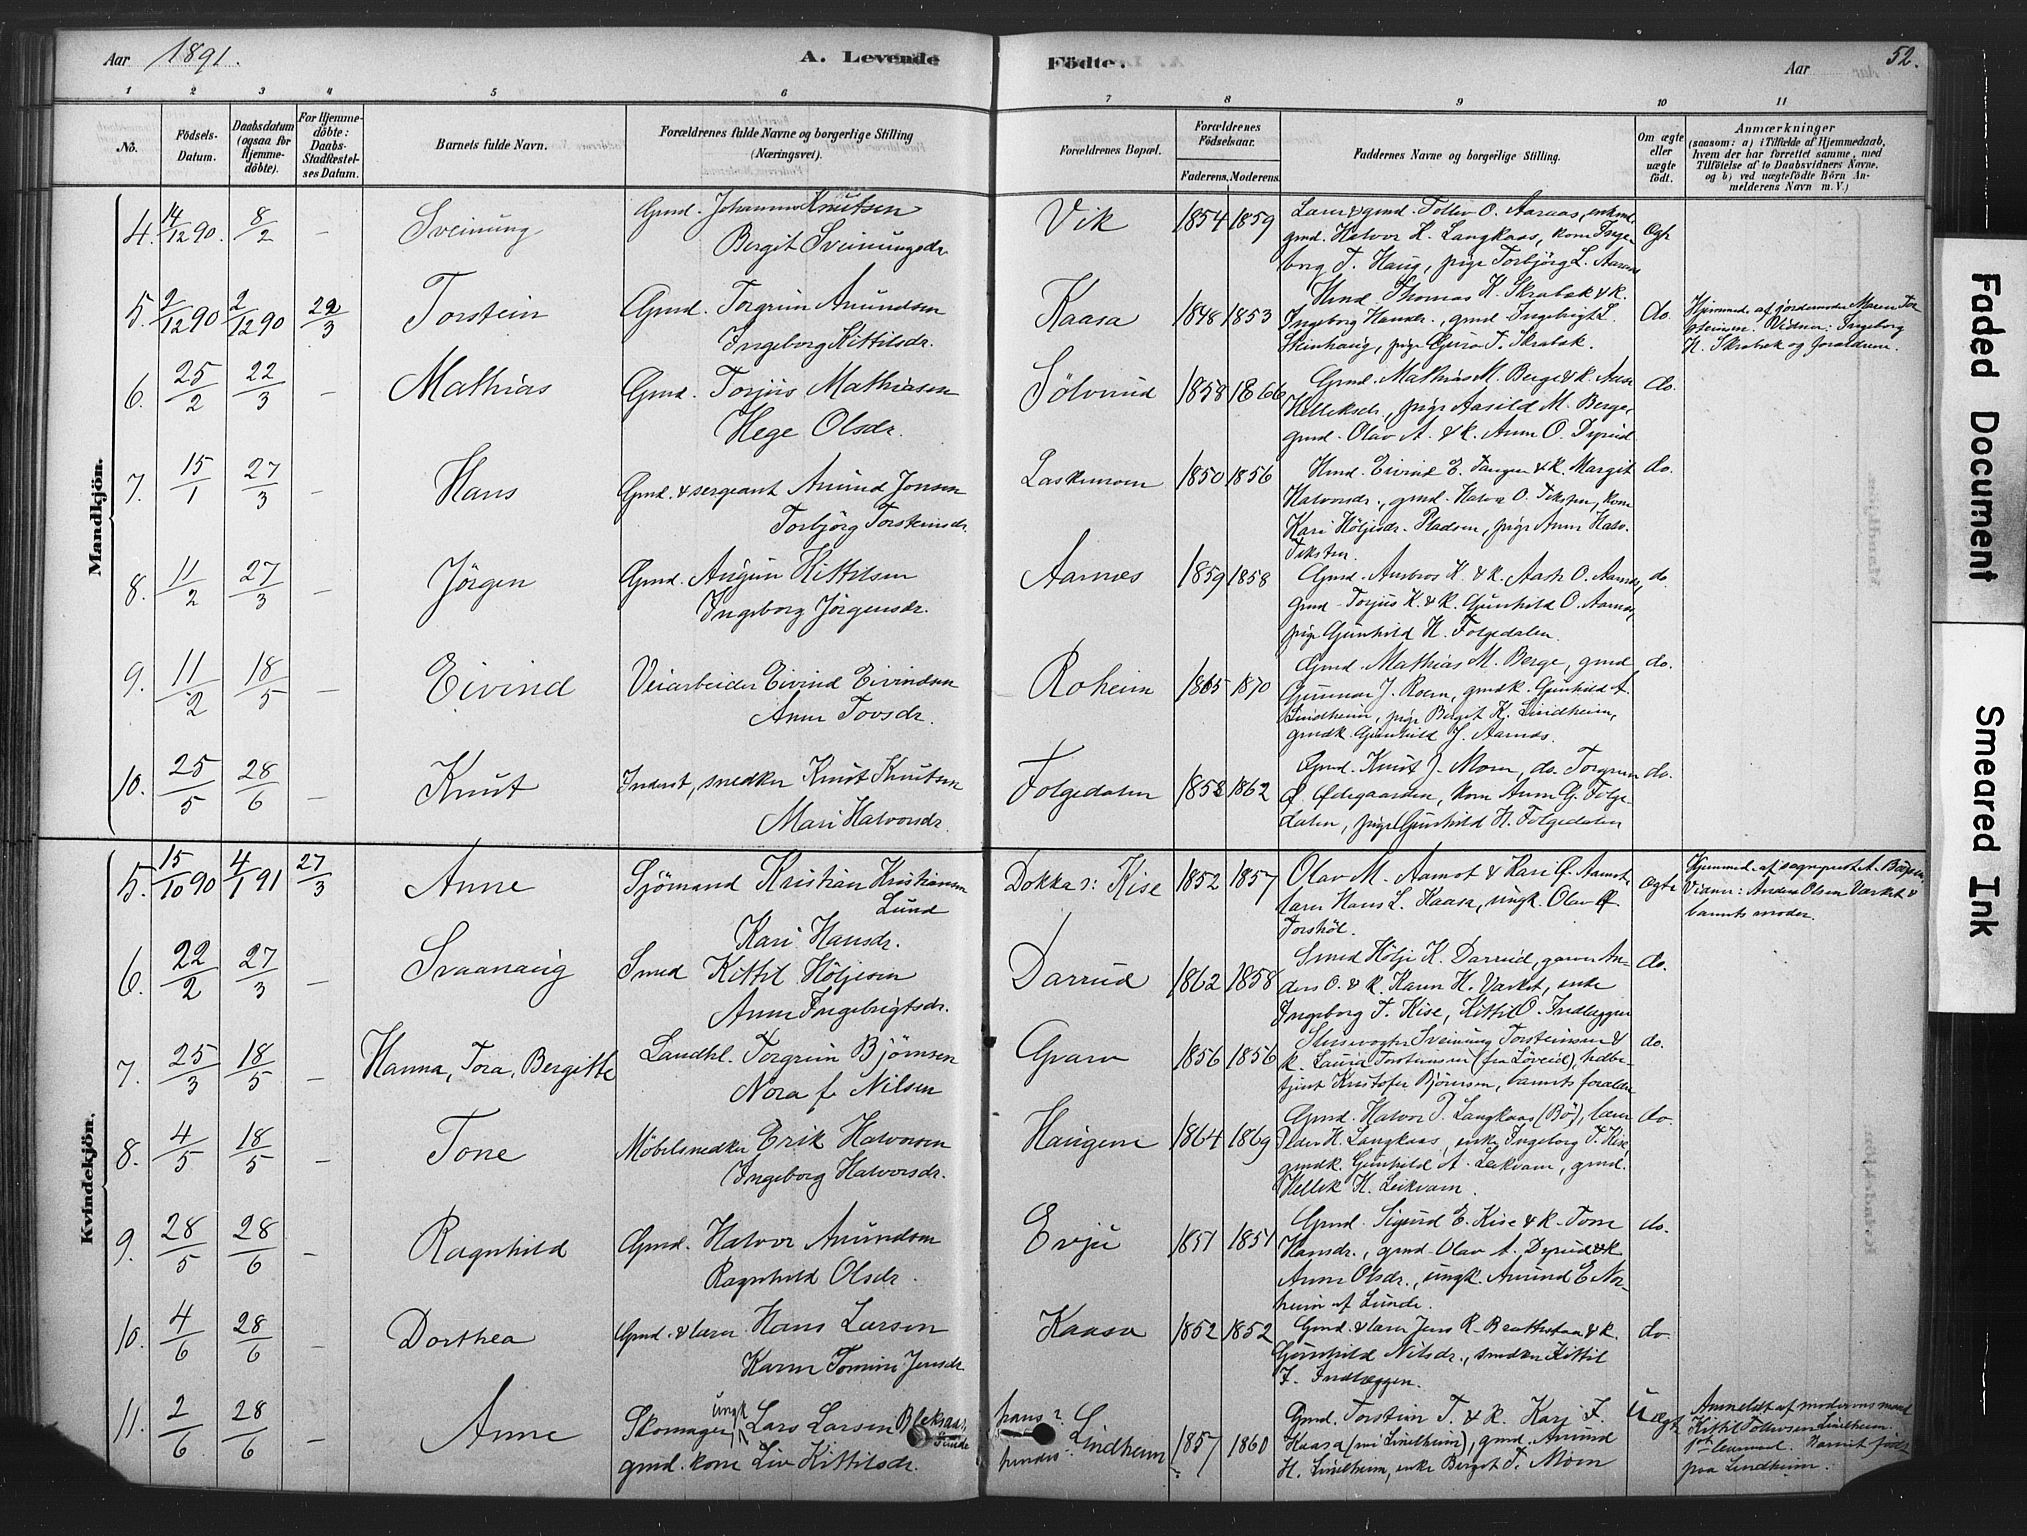 Aar 1891. A. Levende Födte. Aar 52.
1 2 3 4 5 6 7 8 9 10 11
No. Födsels-Datum. Daabsdatum (ogsaa for Hjemmedöbte). For Hjemmedöbte: Daabs-Stadfæstelses Datum. Barnets fulde Navn. Forældrenes fulde Navne og borgerlige Stilling (Næringsvei). Forældrenes Bopæl. Forældrenes Födselsaar. Faderens. Moderens. Faddernes Navne og borgerlige Stilling. Om ægte eller uægte födt. Anmærkninger (saasom: a) i Tilfælde af Hjemmedaab, hvem der har forrettet samme, med Tilföielse af to Daabsvidners Navne, og b) ved uægtefödte Börn Anmelderens Navn m. V.)
Mandkjön.
4. 14/12 90. 8/2 – Sveinung Gmd. Johannes Knutsen Vik 1854 1859 Lærer & gmd. Tollev O. Aaraas, enkm.
Bergit Sveinungsdr. gmd. Halvor H. Langkaas, kone Inge-
borg T. Haug, pige Torbjörg L. Aarnes
5. 2/12 90 2/12 90 22/3 Torstein Gmd. Torgrim Amundsen Kaasa 1848 1853 Hmd. Thomas H. Skrabak & k. do. Hjemmed. af jordemoder Maren Tor-
Ingeborg Kittilsdr. Ingeborg Hansdr., gmd. Ingebrigt L. steinsen. Vidner: Ingeborg
Steinhaug, pige Guro T. Skrabak. H. Skrabak og forældrene.
6. 25/2 22/3 – Mathias Gmd. Torjus Mathiasen Sölvrud 1858 1866 Gmd. Mathias M. Berge & k. Aase do.
Hege Olsdr. Kelleksdr., pige Aasild M. Berge,
gmd. Olav A. & k. Anne O. Dyrud
7. 15/1 27/3 – Hans Gmd. & sergeant Amund Jonsen 1850 1856 Hmd. Eivind E. Tangen & k. Margit do.
Torbjörg Torsteinsdr. Halvorsdr., gmd. Halvor O. Teksten, kone
Kari Höljesdr. Pladsen, pige Anne Halv.
Teksten.
8. 11/2 27/3 – Jörgen Gmd. Augun Kittilsen Aarnes 1859 1858 Gmd. Ambros K. & k. Aase O. Aarnes, do
Ingeborg Jörgensdr. gmd. Torjus K. & k. Gunhild O. Aarnes,
pige Gunhild H. Folgedalen.
9. 11/2 18/5 – Eivind Veiarbeider Eivind Eivindsen Roheim 1865 1870 Gmd. Mathias M. Berge, gmd do.
Anne Tovsdr. Gunnar J. Roen, gmdk. Gunhild A.
Lindheim, pige Bergit K. Lindheim,
gmdk. Gunhild J. Aarnes.
10. 25/5 28/6 – Knut Inderst, snedker Knut Knutsen Folgedalen 1852 1862 Gmd. Knut J. Moen, do. Torgrim do.
Mari Halvorsdr. Ø. Ødegaarden, kone Anne G. Folge-
dalen, pige Gunhild H. Folgedalen
Kvindekjön.
5. 15/10 90 4/1 91 27/3 Anne Sjömand Kristian Kristiansen Dokka ɔ: Kise 1852 1857 Olav M. Aamot & Kari Ø. Aamot, ægte Hjemmed. af sogneprest A.
Lund lærer Hans L. Kaasa, ungk. Olav Ø. Vidner: Anders Olsen Værket &
Kari Hansdr. Torshöl. barnets moder.
6. 22/2 27/3 – Svaanaug Smed Kittil Höljesen Darrud 1862 1858 Smed Hölje K. Darrud, garver An- do.
Anne Ingebrigtsdr. ders O. & k. Karen H. Værket, enke
Ingeborg T. Kise, Kittil O. Indlæggen
7. 25/3 18/5 – Hanna, Tora, Bergitte Landhl. Torgrim Björnsen Gvarv 1856 1856 Slusevogter Sveinung Torsteinsen & do.
Nora f. Nilsen k. Laura Torsteinsen (fra Löveid), hotbe-
tjent Kristofer Björnsen, barnets forældre
8. 4/5 18/5 – Tone Möbelsnedker Erik Halvorsen Haugen 1864 1869 Gmd. Halvor P. Langkaas (Bö), lærer do.
Ingeborg Halvorsdr. Peder H. Langkaas, enke Ingeborg T. Kise,
gmdk. Gunhild A. Leikvam, gmd.
Kellek H. Leikvam.
9. 28/5 28/6 – Ragnhild Gmd. Halvor Amundsen Evju 1851 1851 Gmd. Sigurd E. Kise & k. Tone do.
Ragnhild Olsdr. Hansdr., gmd. Olav A. Dyrud & k.
Anne Olsdr., ungk. Amund E. Nor-
heim af Lunde.
10. 4/6 28/6 – Dorthea Gmd. & lærer Hans Larsen Kaasa 1852 1852 Gmd. & lærer Jens R. Brattestaa & k. do.
Karen Tomine Jensdr. Gunhild Nilsdr., snedker Kittil
F. Indlæggen.
11. 2/6 28/6 – Anne Skomager, ungk. Lars Larsen Bleksaas, Lunde hans: 1857 1860 Gmd. Torstein T. & k. Kari F. Uægte Anmeldt af moderens mand
gmd. kone Liv Kittilsdr. hendes: Lindheim Kaasa (nu Lindheim), gmd. Amund Kittil Tollevsen Lindheim.
H. Lindheim, enke Bergit T. Moen Barnet født
paa Lindheim.
Faded Document
Smeared Ink